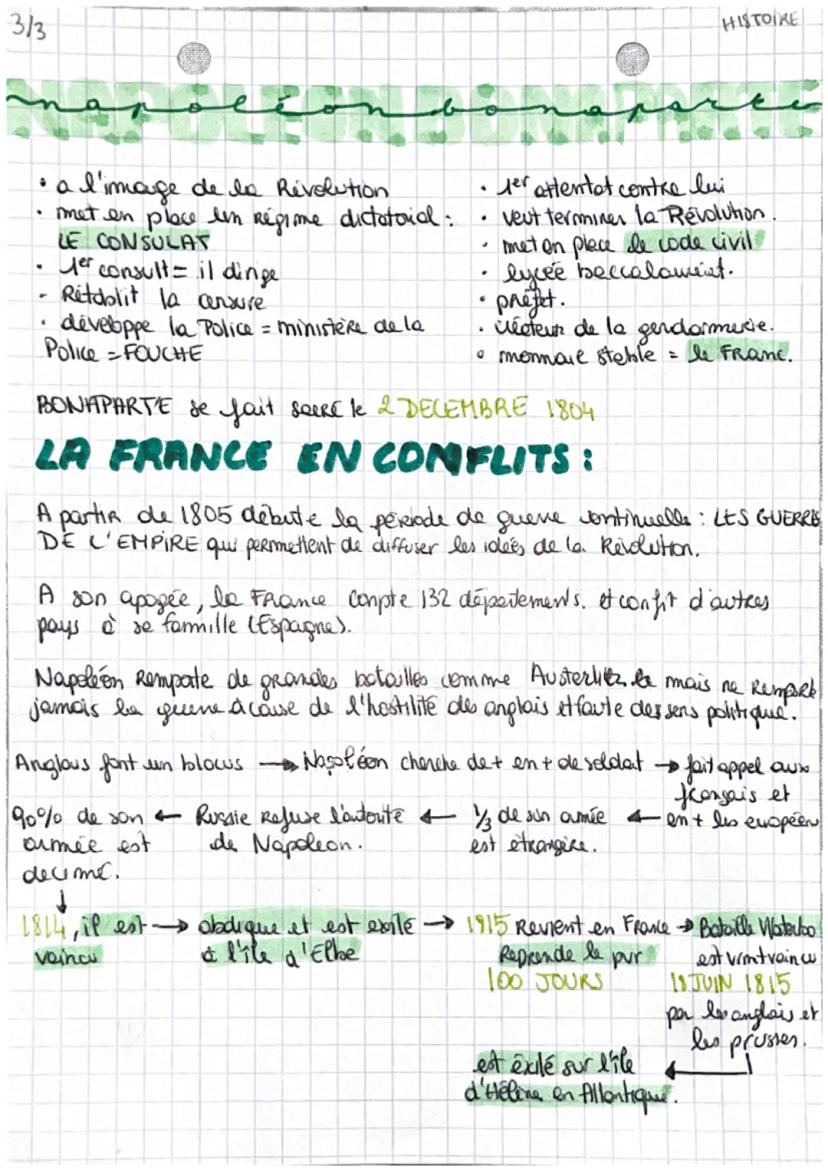 3/3
HISTOIRE
napoléon bonaparte
NAPOLEON BONAPARTE
• a l'image de la Révolution
• met en place un régime dictatoial :
LE CONSULAT
• 1er consult = il dirige
- Rétablit la censure
• développe la Police = ministère de la
Police = FOUCHE
• 1er attentat contre lui
• veut terminer la Révolution.
• met en place le code civil
• lycée baccalauréat.
• préfet.
• créateur de la gendarmerie.
• monnaie stable = le Franc.
BONAPARTE se fait sacré le 2 DECEMBRE 1804
LA FRANCE EN CONFLITS :
A partir de 1805 débute la période de guerre continuelle : LES GUERRE
DE L'EMPIRE qui permettent de diffuser les idées de la Révolution.
A son apogée, la France compte 132 départements. et confit d'autres
pays à sa famille (Espagne).
Napoléon remporte de grandes batailles comme Austerlitz mais ne remporte
jamais la guerre à cause de l'hostilité des anglais et faute des sens politique.
Anglais font un blocus → Napoléon cherche de + en + de soldat → fait appel aux
français et
90% de son ← Russie refuse l'autorité ← 1/3 de sun armée ← en + les européen
armée est de Napoleon. est étrangère.
decimé.
↓
1814, il est → abdique et est exilé → 1915 Revient en France → Bataille Waterloo
vaincu à l'île d'Elbe Reprende le pvr est vaincu
100 JOURS 18 JUIN 1815
par les anglais et
les prusses.
est éxilé sur l'île ←
d'Hélène en Atlantique.